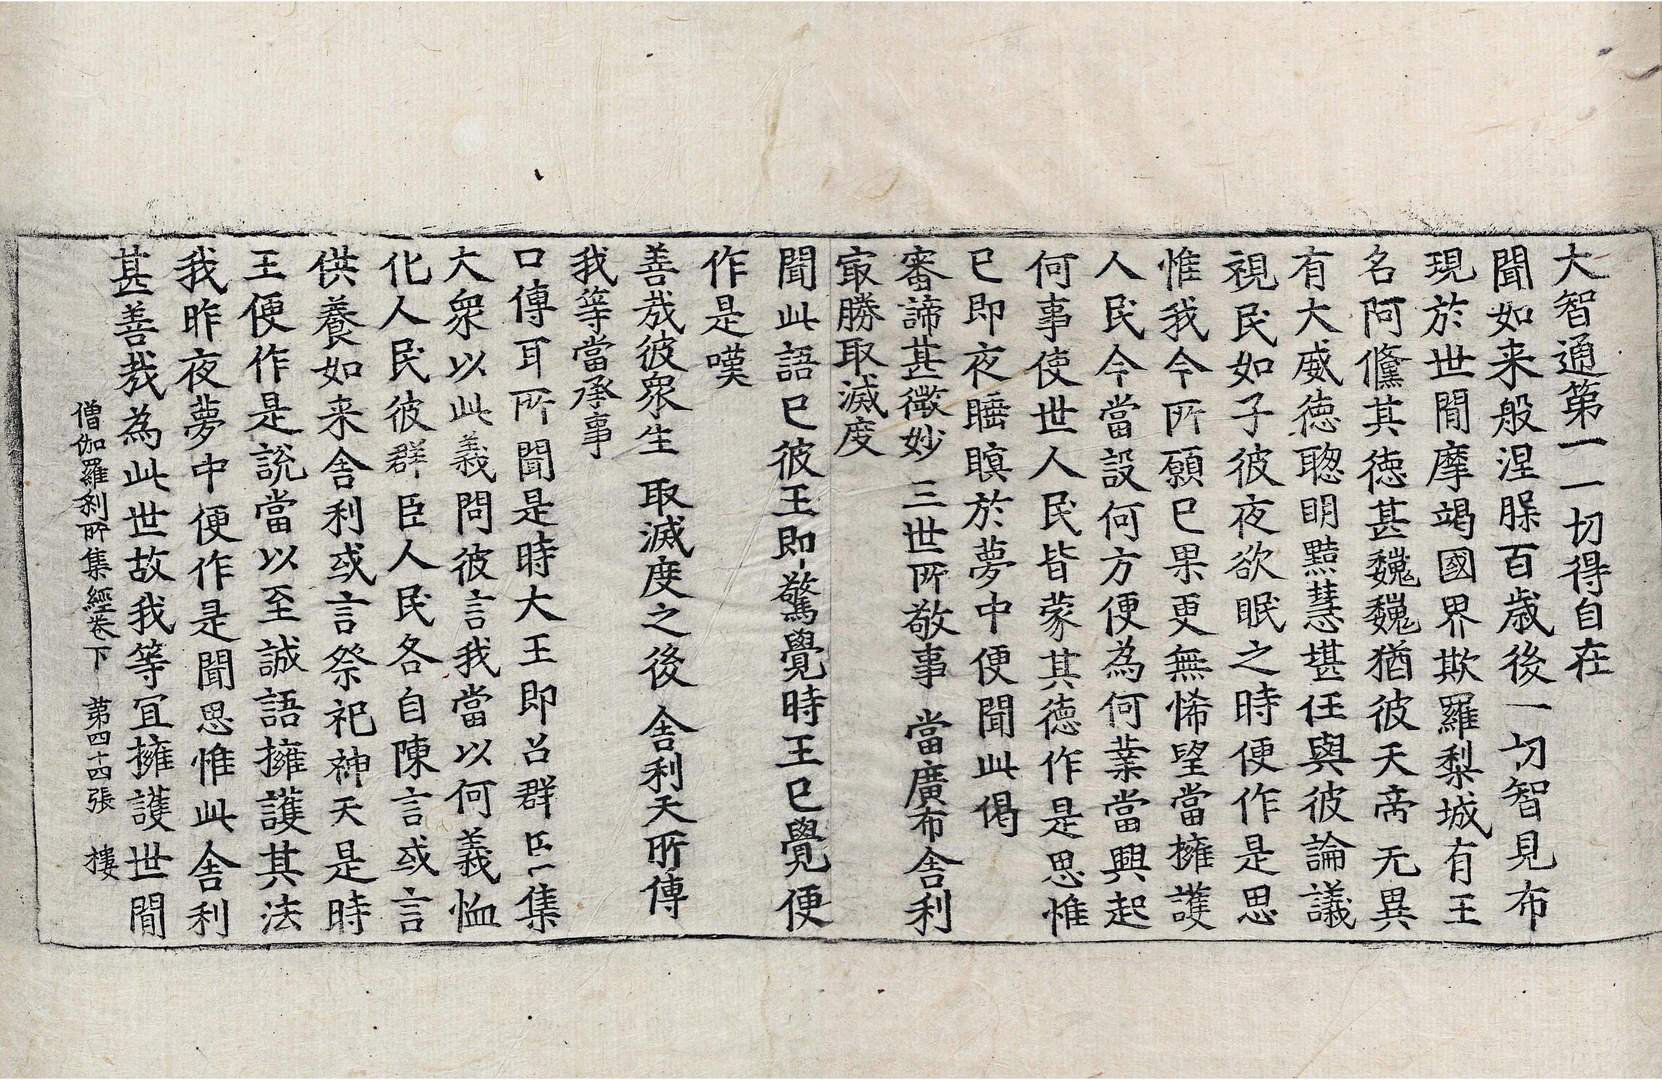 大智通第一 一切得自在
聞如来般涅脵百歳後一切智見布
現於世間摩竭國界欺羅梨城有王
名阿儵其徳甚魏魏猶彼天帝无異
有大威徳聡明黠慧堪任與彼論議
視民如子彼夜欲眠之時便作是思
惟我今所願已果更無悕望當擁護
人民今當設何方便為何業當興起
何事使世人民皆蒙其徳作是思惟
已即夜睡瞑於夢中便聞此偈
審諦甚微妙 三世所敬事 當廣布舎利
㝡勝取滅度
聞此語已彼王即驚覺時王已覺便
作是嘆
善哉彼衆生 取滅度之後 舎利天所傳
我等當承事
口傳耳所聞是時大王即召群臣集
大衆以此義問彼言我當以何義恤
化人民彼群臣人民各自陳言或言
供養如来舎利或言祭祀神天是時
王便作是説當以至誠語擁護其法
我昨夜夢中便作是聞思惟此舎利
甚善哉為此世故我等宜擁護世間
僧伽羅刹所集經卷下 第四十四張 樓